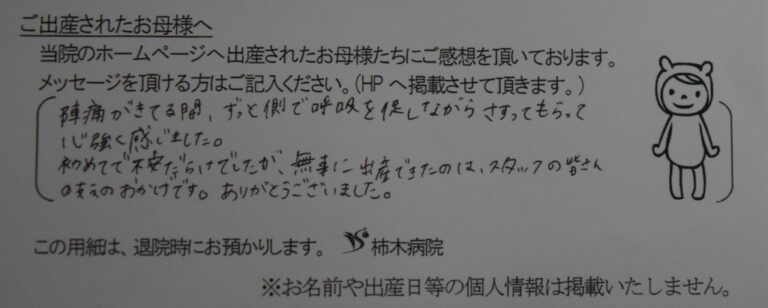 ご出産されたお母様へ
当院のホームページへ出産されたお母様たちにご感想を頂いております。
メッセージを頂ける方はご記入ください。(HPへ掲載させて頂きます。)
陣痛がきてる間、ずっと側で呼吸を促しながらさすってもらって
心強く感じました。
初めてで不安だらけでしたが、無事に出産できたのは、スタッフの皆さん
の支えのおかげです。ありがとうございました。
この用紙は、退院時にお預かりします。 柿木病院
※お名前や出産日等の個人情報は掲載いたしません。